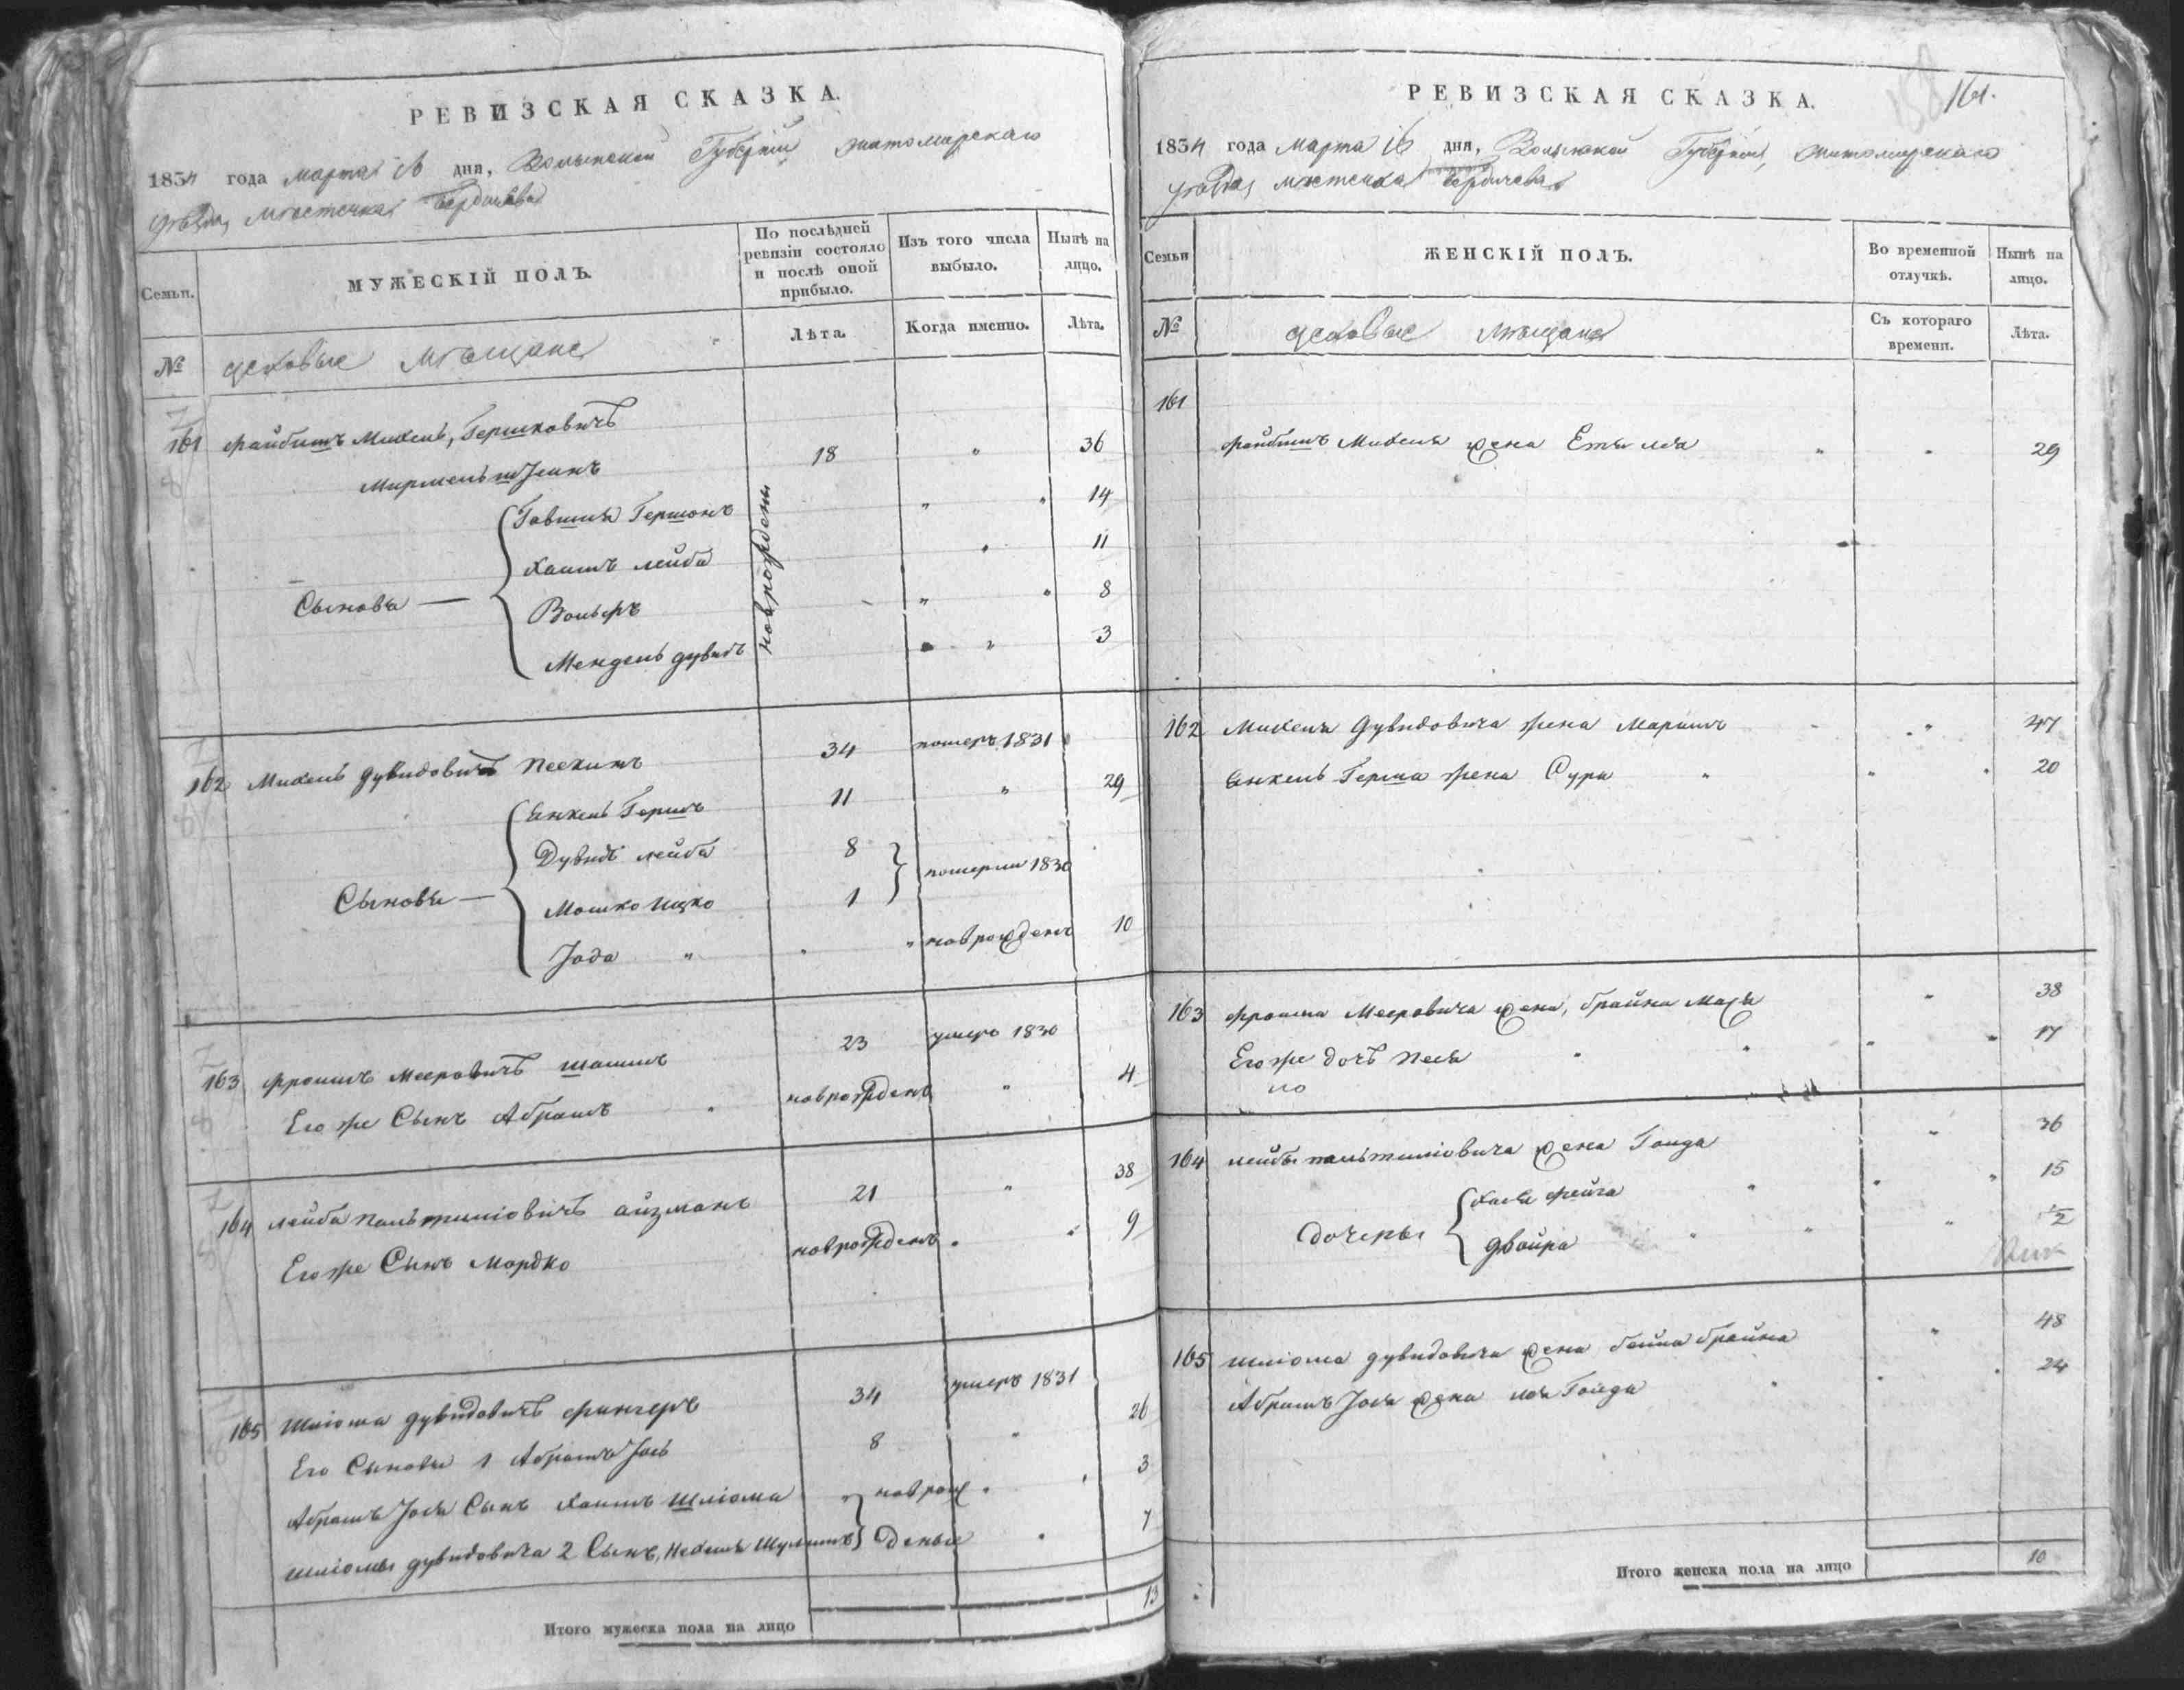 РЕВИЗСКАЯ СКАЗКА.
1834 года марта 16 дня, Волынской Губернiи Житомирскаго
уѣзда, мѣстечка Бердичева
Семьи.
МУЖЕСКІЙ ПОЛЪ.
По послѣдней ревизіи состояло и послѣ оной прибыло.
Изъ того числа выбыло.
Нынѣ на лицо.
№
цеховые мѣщане
Лѣта.
Когда именно.
Лѣта.
161 Файбишъ Михель, Гершковичъ
18 " 36
Сыновья —
Гершонъ " " 14
Хаимъ Лейба " 11
Вольфъ " " 8
Мендель Дувидъ " 3
новорождены
162 Михель Дувидовичъ 34 померъ 1831
Сыновья —
Янкель Гершъ 11 " 29
Дувидъ Лейба 8
Мошко Ицко 1 померли 1830
" " " новрожденъ 10
163 Фроимъ Мееровичъ 23 умеръ 1830
Его же Сынъ Абрамъ " новрожденъ " 4
164 Лейба Пальтиліовичъ Айзманъ 21 " 38
Его же Сынъ Мордко новрожденъ " " 9
165 Шліома Дувидовичъ Фингеръ 34 умеръ 1831
Его Сыновья 1 Абрамъ Іось 8 " 26
Абрамъ Іося Сынъ Хаимъ Шліома " новрож " 3
Шліомы Дувидовича 2 Сынъ, деные " 7
Итого мужеска пола на лицо 13
РЕВИЗСКАЯ СКАЗКА.
161.
1834 года Марта 16 дня, Волынской Губернiи, Житомирскаго
уѣзда, мѣстечка Бердичева
Семьи
ЖЕНСКІЙ ПОЛЪ.
Во временной отлучкѣ.
Нынѣ на лицо.
№
цеховые мѣщане
Съ котораго времени.
Лѣта.
161
Файбишъ Михеля жена " " 29
162 Михеля Дувидовича жена Маріямъ " 47
Янкель Герша жена Сура " " " 20
163 Фроима Мееровича жена, Брайна " 38
Его же дочь Песя " " " " 17
164 Лейбы Пальтиліовича жена Гонда " 36
Дочеры
Хася Фейга " " " 15
Двойра " " " 1/2
165 Шліома Дувидовича жена Бейла Брайна " 48
Абрамъ Іося жена " " " 24
Итого женска пола на лицо 10